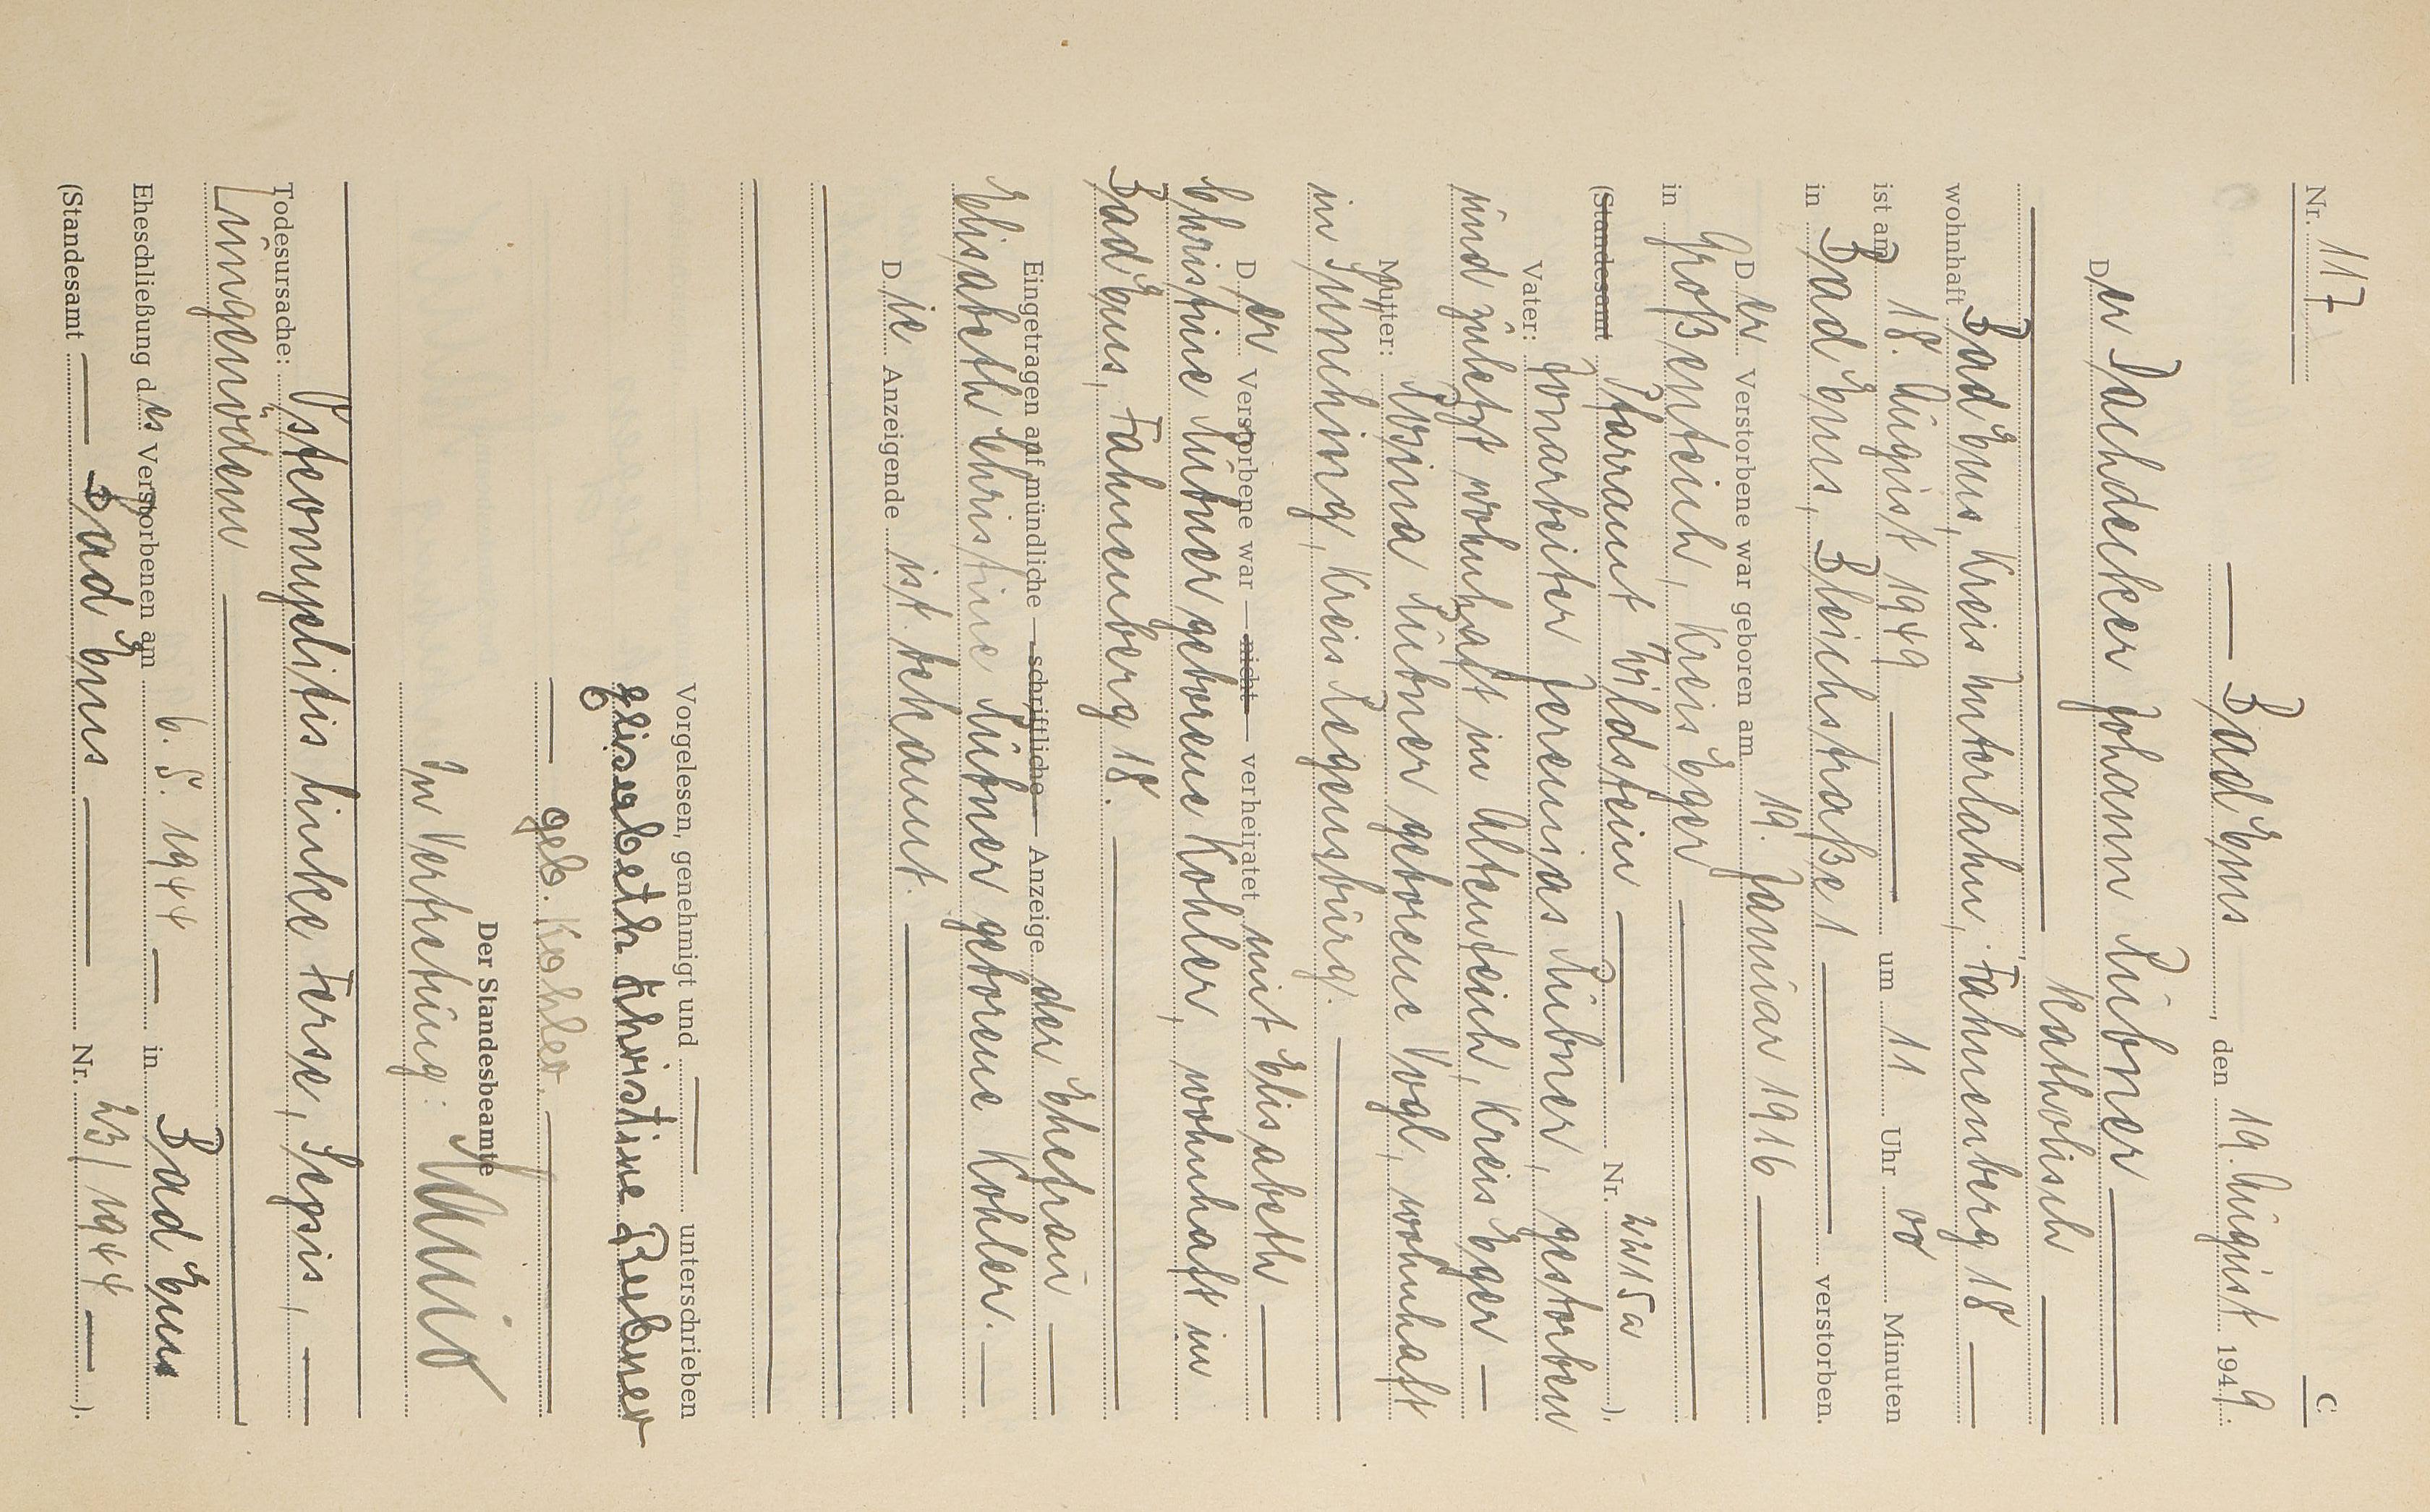 C
Nr. 117
Bad Ems, den 19. August 1949.
Der Dachdecker Johann Rubner
Katholisch
wohnhaft Bad Ems, Kreis Unterlahn, Fahnenberg 18
ist am 18. August 1949 um 11 Uhr 00 Minuten
in Bad Ems, Bleichstraße 1 verstorben.
Der Verstorbene war geboren am 19. Januar 1916
in Großenteich, Kreis Eger
(Standesamt Pfarramt Wildstein Nr. 2215a).
Vater: Tonarbeiter Jeremias Rubner, gestorben
und zuletzt wohnhaft in Altenteich, Kreis Eger
Mutter: Rosina Rubner geborene Vogl, wohnhaft
in Sünching, Kreis Regensburg.
Der Verstorbene war nicht verheiratet mit Elisabeth
Christine Rubner geborene Kohler, wohnhaft in
Bad Ems, Fahnenberg 18.
Eingetragen auf mündliche schriftliche Anzeige der Ehefrau
Elisabeth Christine Rubner geborene Kohler.
Die Anzeigende ist bekannt.
Vorgelesen, genehmigt und unterschrieben
Elisabeth Christine Rubner
geb. Kohler.
Der Standesbeamte
In Vertretung:
Todesursache: Osteomyelitis linke Ferse, Sepsis,
Lungenödem
Eheschließung des Verstorbenen am 6. 5. 1944 in Bad Ems
(Standesamt Bad Ems Nr. 23/1944).